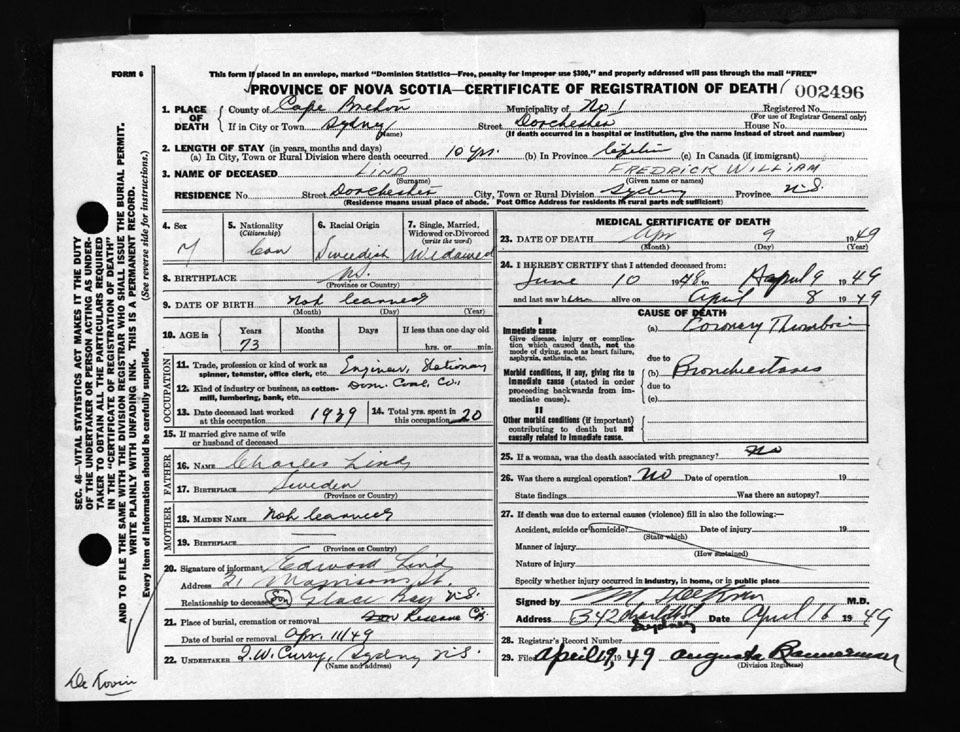 FORM 6
This form if placed in an envelope, marked "Dominion Statistics—Free, penalty for improper use $300," and properly addressed will pass through the mail "FREE"
PROVINCE OF NOVA SCOTIA—CERTIFICATE OF REGISTRATION OF DEATH 002496
1. PLACE OF DEATH County of Cape Breton Municipality of No 1 Registered No.
(For use of Registrar General only)
If in City or Town Sydney Street Dorchester House No.
(Name) (If death occurred in a hospital or institution, give the name instead of street and number)
2. LENGTH OF STAY (in years, months and days)
(a) In City, Town or Rural Division where death occurred 10 yrs. (b) In Province (c) In Canada (if immigrant)
3. NAME OF DECEASED LIND FREDRICK WILLIAM
(Surname) (Given name or names)
RESIDENCE No. Street Dorchester City, Town or Rural Division Sydney Province N.S.
(Residence means usual place of abode. Post Office Address for residents in rural parts not sufficient)
4. Sex 5. Nationality (Citizenship) 6. Racial Origin 7. Single, Married, Widowed or Divorced (write the word)
M Can Swedish Widowed
8. BIRTHPLACE
(Province or Country)
9. DATE OF BIRTH Not learned
(Month) (Day) (Year)
10. AGE in Years Months Days If less than one day old
73 hrs. or min.
OCCUPATION
11. Trade, profession or kind of work as spinner, teamster, office clerk, etc. Engineer, Stationary
12. Kind of industry or business, as cotton-mill, lumbering, bank, etc. Dom. Coal Co.
13. Date deceased last worked at this occupation 1939 14. Total yrs. spent in this occupation 20
15. If married give name of wife or husband of deceased
FATHER
16. NAME Charles Lind
17. BIRTHPLACE Sweden
(Province or Country)
MOTHER
18. MAIDEN NAME Not learned
19. BIRTHPLACE
(Province or Country)
20. Signature of informant Edward Lind
Address 21 Morrison St.
Relationship to deceased Son Glace Bay N.S.
21. Place of burial, cremation or removal
Date of burial or removal Apr. 11/49
22. UNDERTAKER T.W. Curry, Sydney N.S.
(Name and address)
MEDICAL CERTIFICATE OF DEATH
23. DATE OF DEATH Apr 9 1949
(Month) (Day)
24. I HEREBY CERTIFY that I attended deceased from:
June 10 1948 to April 9 1949
and last saw him alive on April 8 1949
CAUSE OF DEATH
I
Immediate cause (a) Coronary Thrombosis
Give disease, injury or complication which caused death, not the mode of dying, such as heart failure, asphyxia, asthenia, etc.
due to
Morbid conditions, if any, giving rise to immediate cause (stated in order proceeding backwards from immediate cause). (b) Bronchiectasis
due to
(c)
II
Other morbid conditions (if important) contributing to death but not causally related to immediate cause.
25. If a woman, was the death associated with pregnancy? No
26. Was there a surgical operation? No Date of operation 19
State findings Was there an autopsy?
27. If death was due to external causes (violence) fill in also the following:—
Accident, suicide or homicide? Date of injury 19
(State which)
Manner of injury
(How sustained)
Nature of injury
Specify whether injury occurred in industry, in home, or in public place
Signed by M.D.
Address 342 Sydney Date April 16 1949
28. Registrar's Record Number
29. Filed April 19, 1949 Augusta Bannerman
(Division Registrar)
SEC. 46—VITAL STATISTICS ACT MAKES IT THE DUTY
OF THE UNDERTAKER OR PERSON ACTING AS UNDER-
TAKER TO OBTAIN ALL THE PARTICULARS REQUIRED
IN THE "CERTIFICATE OF REGISTRATION OF DEATH"
AND TO FILE THE SAME WITH THE DIVISION REGISTRAR WHO SHALL ISSUE THE BURIAL PERMIT.
WRITE PLAINLY WITH UNFADING INK. THIS IS A PERMANENT RECORD.
Every item of information should be carefully supplied. (See reverse side for instructions.)